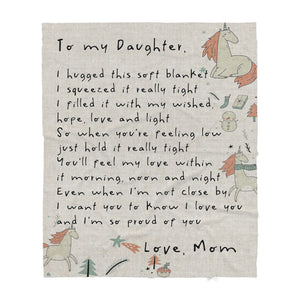 To my Daughter,
I hugged this soft blanket
I squeezed it really tight
I filled it with my wished,
hope, love and light
So when you're feeling low
just hold it really tight
You'll feel my love within
it morning, noon and night
Even when I'm not close by
I want you to know I love you
and I'm so proud of you
Love, Mom